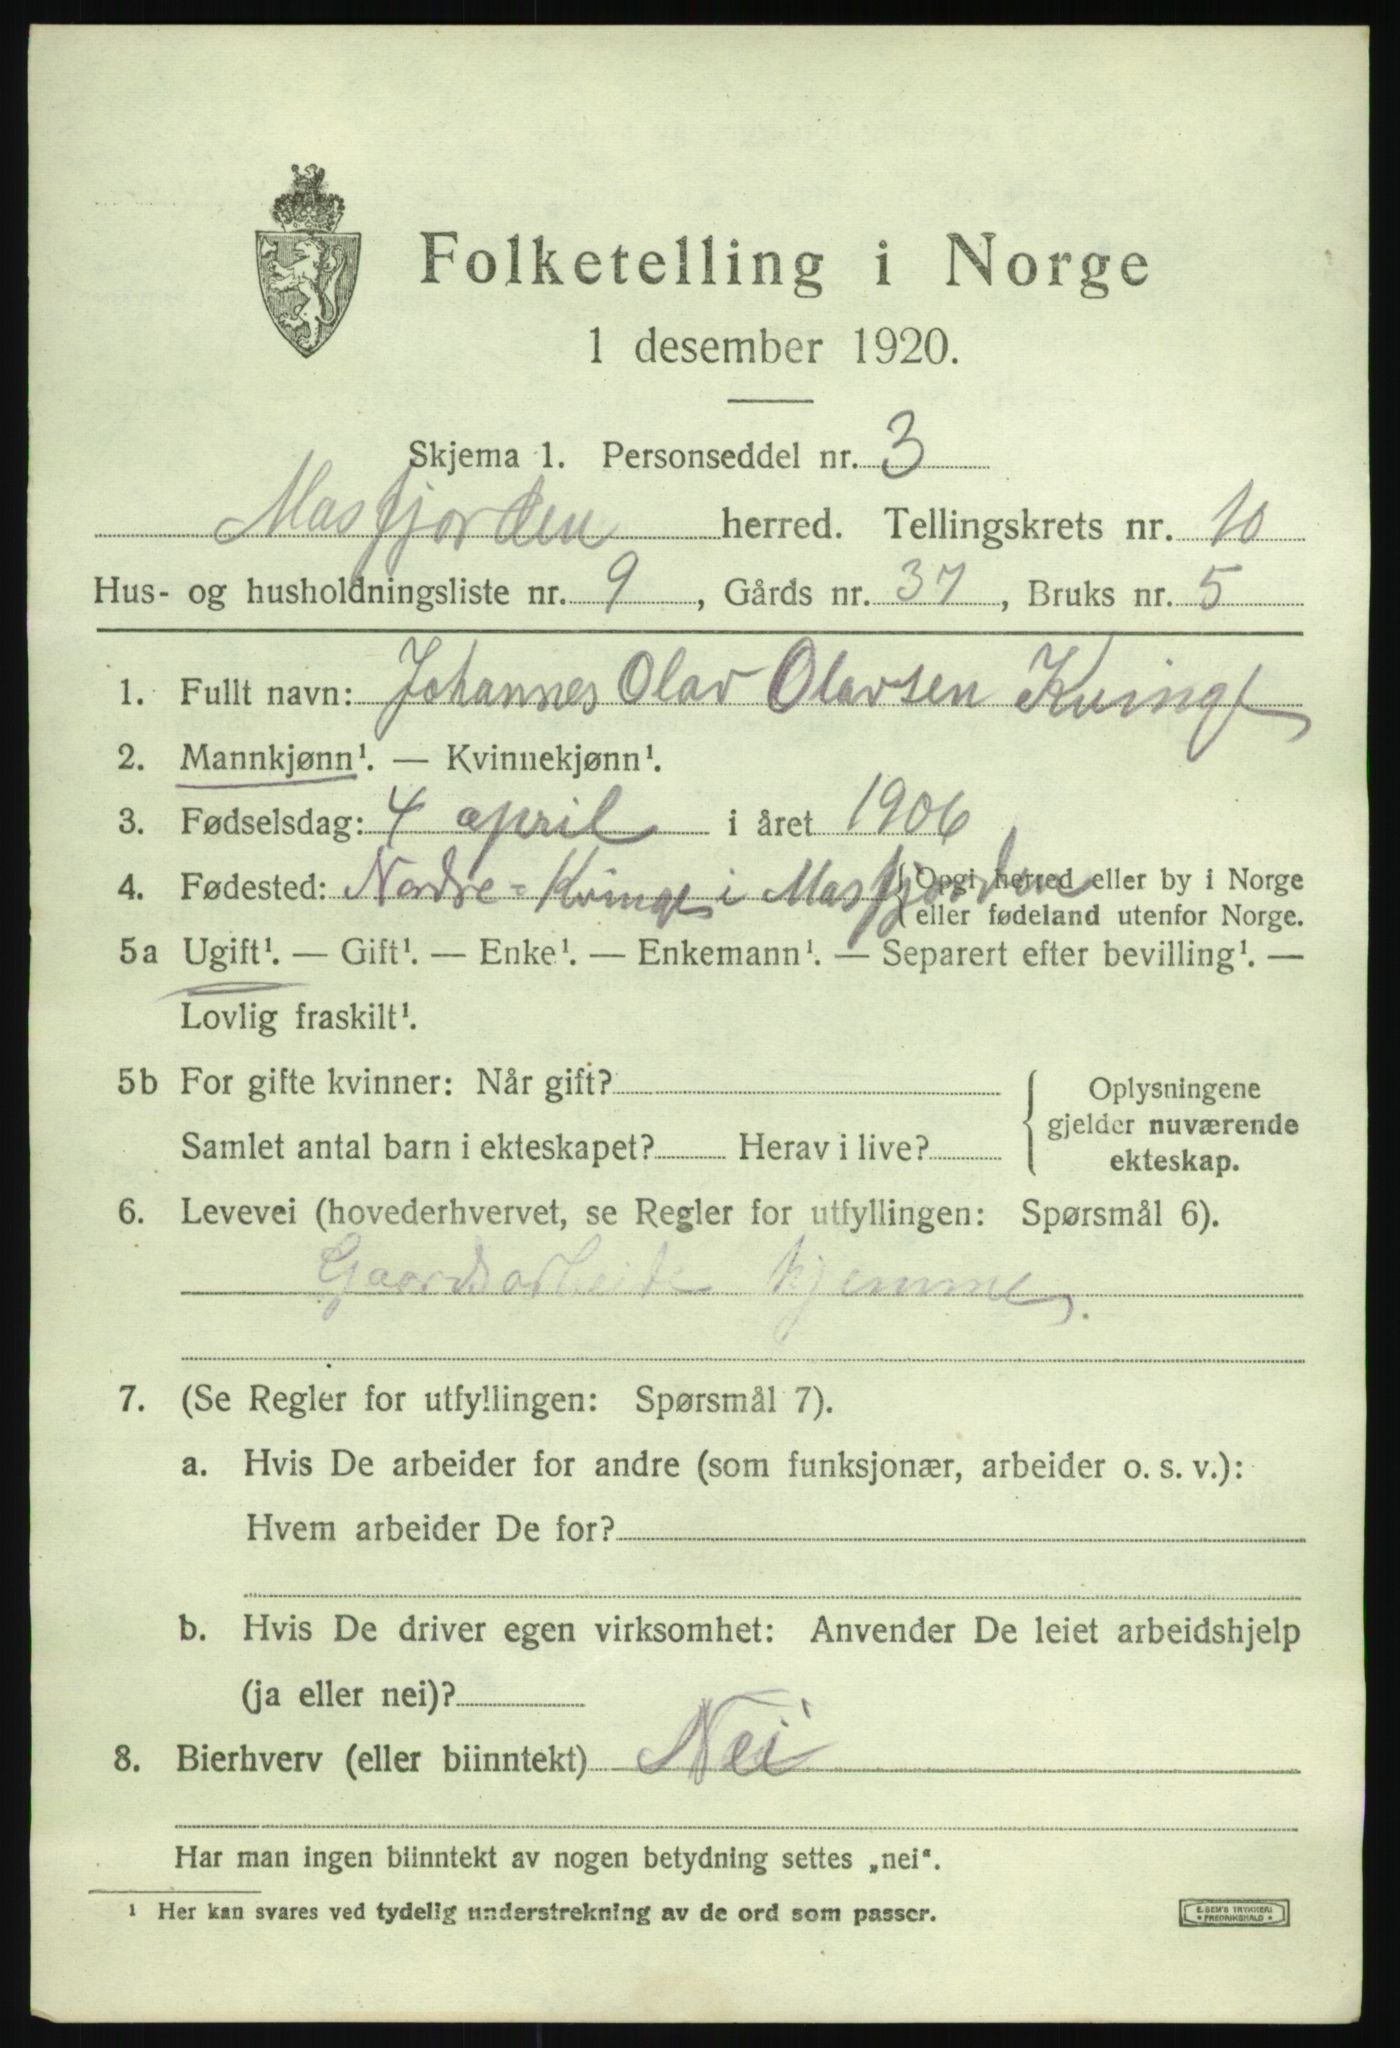 Folketelling i Norge
1 desember 1920.
Skjema 1. Personseddel nr. 3
Masfjorden herred. Tellingskrets nr. 10
Hus- og husholdningsliste nr. 9, Gårds nr. 37, Bruks nr. 5
1. Fullt navn: Johannes Olav Olavsen Kvinge
2. Mannkjønn¹. — Kvinnekjønn¹.
3. Fødselsdag: 4 april i året 1906
4. Fødested: Nordre=Kvinge i Masfjorden { Opgi herred eller by i Norge
eller fødeland utenfor Norge.
5a Ugift¹. — Gift¹. — Enke¹. — Enkemann¹. — Separert efter bevilling¹. —
Lovlig fraskilt¹.
5b For gifte kvinner: Når gift?
Samlet antal barn i ekteskapet? Herav i live?
Oplysningene
gjelder nuværende
ekteskap.
6. Levevei (hovederhvervet, se Regler for utfyllingen: Spørsmål 6).
Gaardsarbeide hjemme.
7. (Se Regler for utfyllingen: Spørsmål 7).
a. Hvis De arbeider for andre (som funksjonær, arbeider o. s. v.):
Hvem arbeider De for?
b. Hvis De driver egen virksomhet: Anvender De leiet arbeidshjelp
(ja eller nei)?
8. Bierhverv (eller biinntekt) Nei
Har man ingen biinntekt av nogen betydning settes „nei“.
¹ Her kan svares ved tydelig understrekning av de ord som passer.
E. SEM'S TRYKKERI
* FREDRIKSHALD *